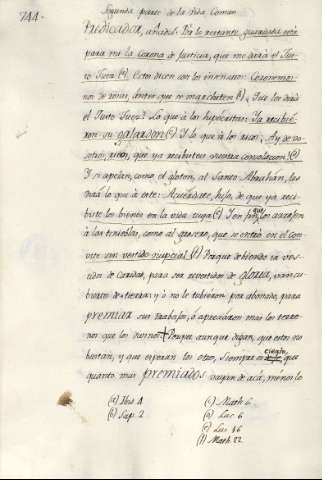 244.
Segunda parte de la Vida Comun
Predicador, añadas. En lo restante, guardada está
para mi la corona de Justicia, que me dará el Jus-
to Juez (a). Estos dicen con los
nos de rosas, antes que se marchiten (b). Que les dará
el Justo Juez? Lo que á los hipocritas: Ya recibie-
ron su galardon (c). I lo que á los ricos: Ay de vo-
sotros, ricos, que ya recibisteis vuestra consolacion! (d)
I si apelan, como el gloton, al Santo Abrahán, les
dirá lo que á este: Acuerdate, hijo, de que ya reci-
biste los bienes en la vida tuya (e). I en fin que los arrojen
á las tinieblas, como al grosero, que se entró en el con-
vite sin vestido nupcial (f). Porque debiendo ir vesti-
dos de Caridad, para ser revestidos de gloria,
de tierra: y ó no le tubieron por abonado, para
premiar sus trabajos, ó apreciaron mas los terre-
nos que los divinos + Porque aunque digan, que estos no
buscan, y que esperan los otros, siempre es cierto, que
quanto mas premiados vayan de acá, menos lo
(a) Ibid 4
(b) Sap 2
(c) Math 6
(d) Luc 6
(e) Luc 16
(f) Math 22